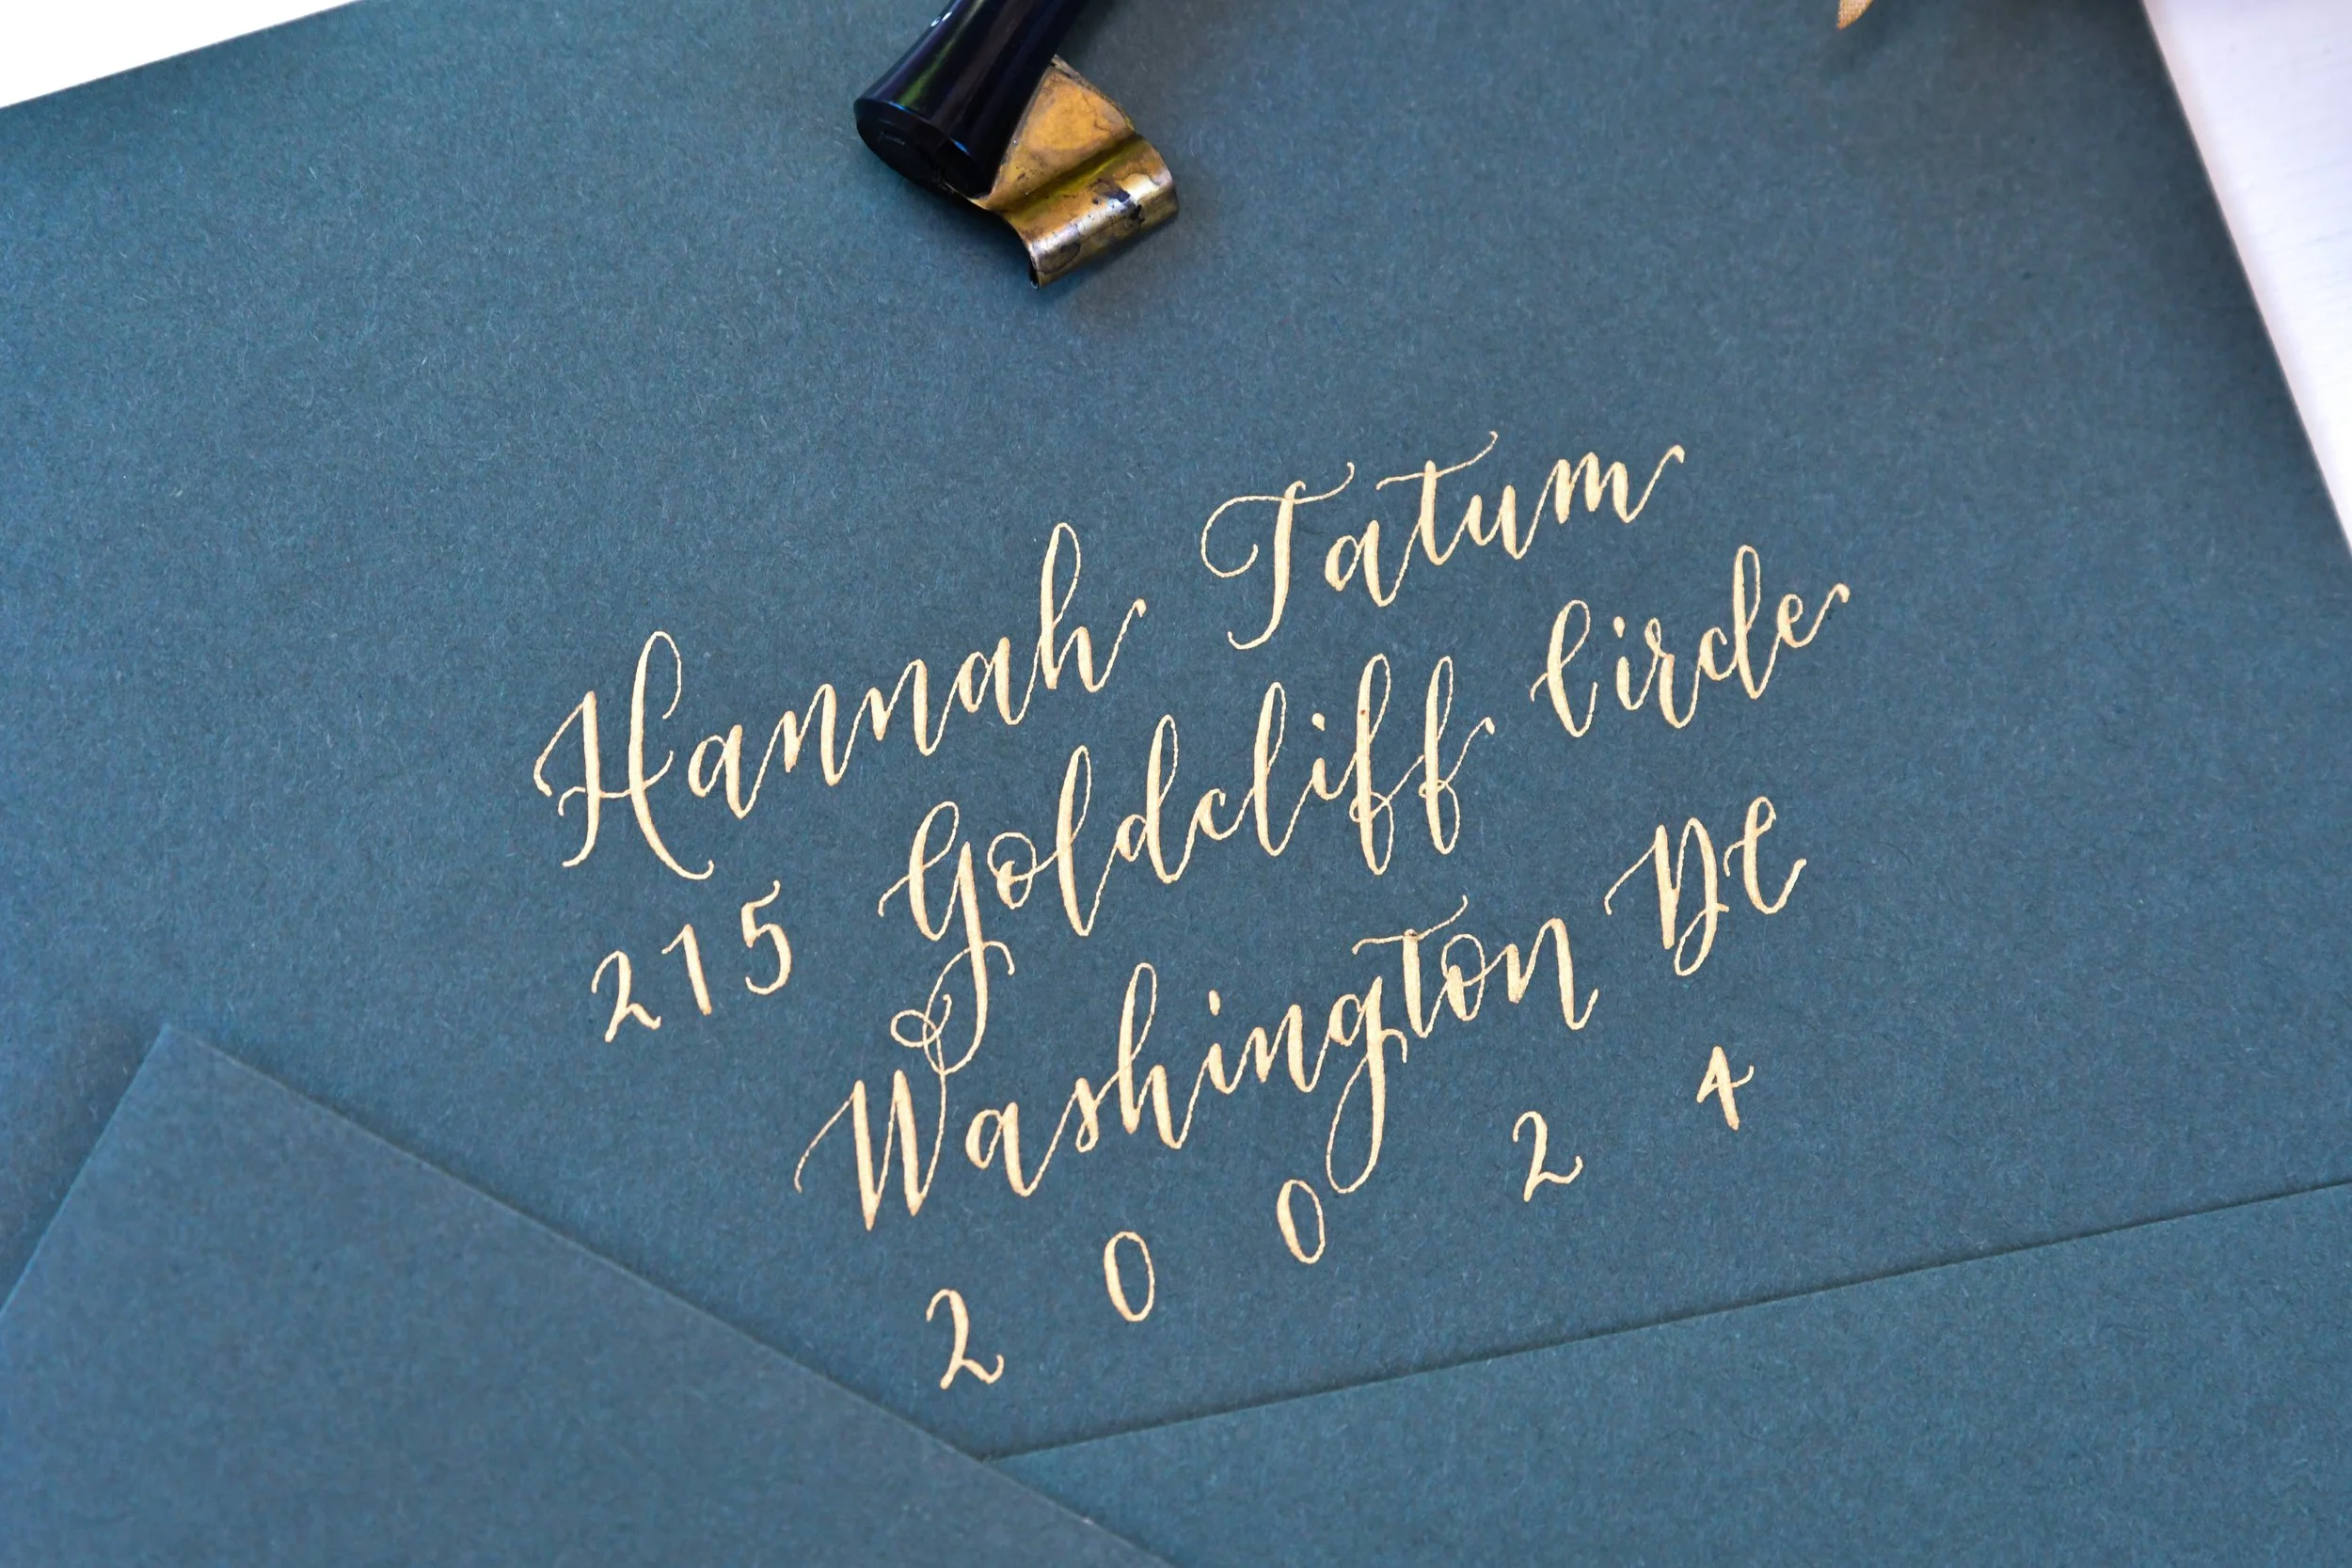 Hannah Tatum
215 Goldcliff Circle
Washington DC
20024